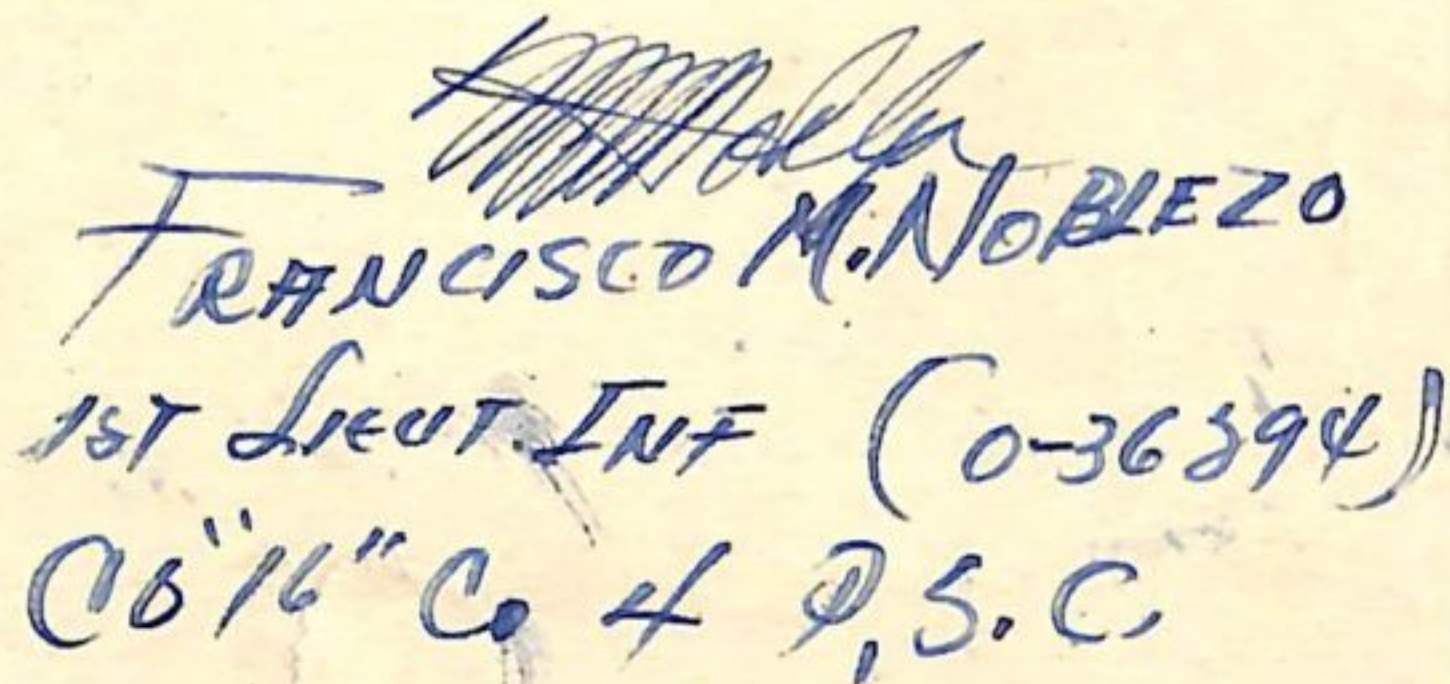 FRANCISCO M. NOBLEZO
1ST LIEUT. INF (0-36394)
CO "16" Co. 4 P.S.C